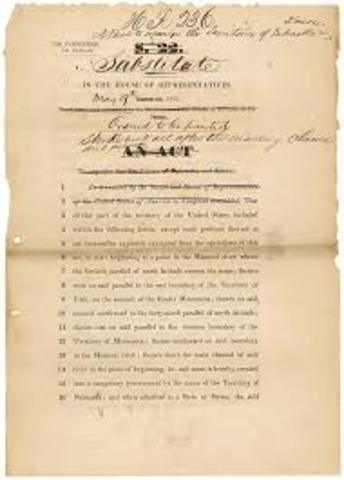 H.R. 236.
House
A Bill to organize the Territory of Nebraska
S. 22.
Substitute
IN THE HOUSE OF REPRESENTATIVES
May 9th
Ordered to be printed
Strike out all after the enacting clause
AN ACT
To organize the Territory of Nebraska
1 Be it enacted by the Senate and House of Representatives
2 of the United States of America in Congress assembled, That
3 of that part of the territory of the United States included
4 within the following limits, except such portions thereof as
5 are hereinafter expressly exempted from the operations of this
6 act, to wit: beginning at a point in the Missouri river where
7 the fortieth parallel of north latitude crosses the same; thence
8 west on said parallel to the east boundary of the Territory of
9 Utah, on the summit of the Rocky Mountains; thence on said
10 summit northward to the forty-ninth parallel of north latitude;
11 thence east on said parallel to the western boundary of the
12 Territory of Minnesota; thence southward on said boundary
13 to the Missouri river; thence down the main channel of said
14 river to the place of beginning, be, and the same is hereby, created
15 into a temporary government by the name of the Territory of
16 Nebraska; and when admitted as a State or States, the said